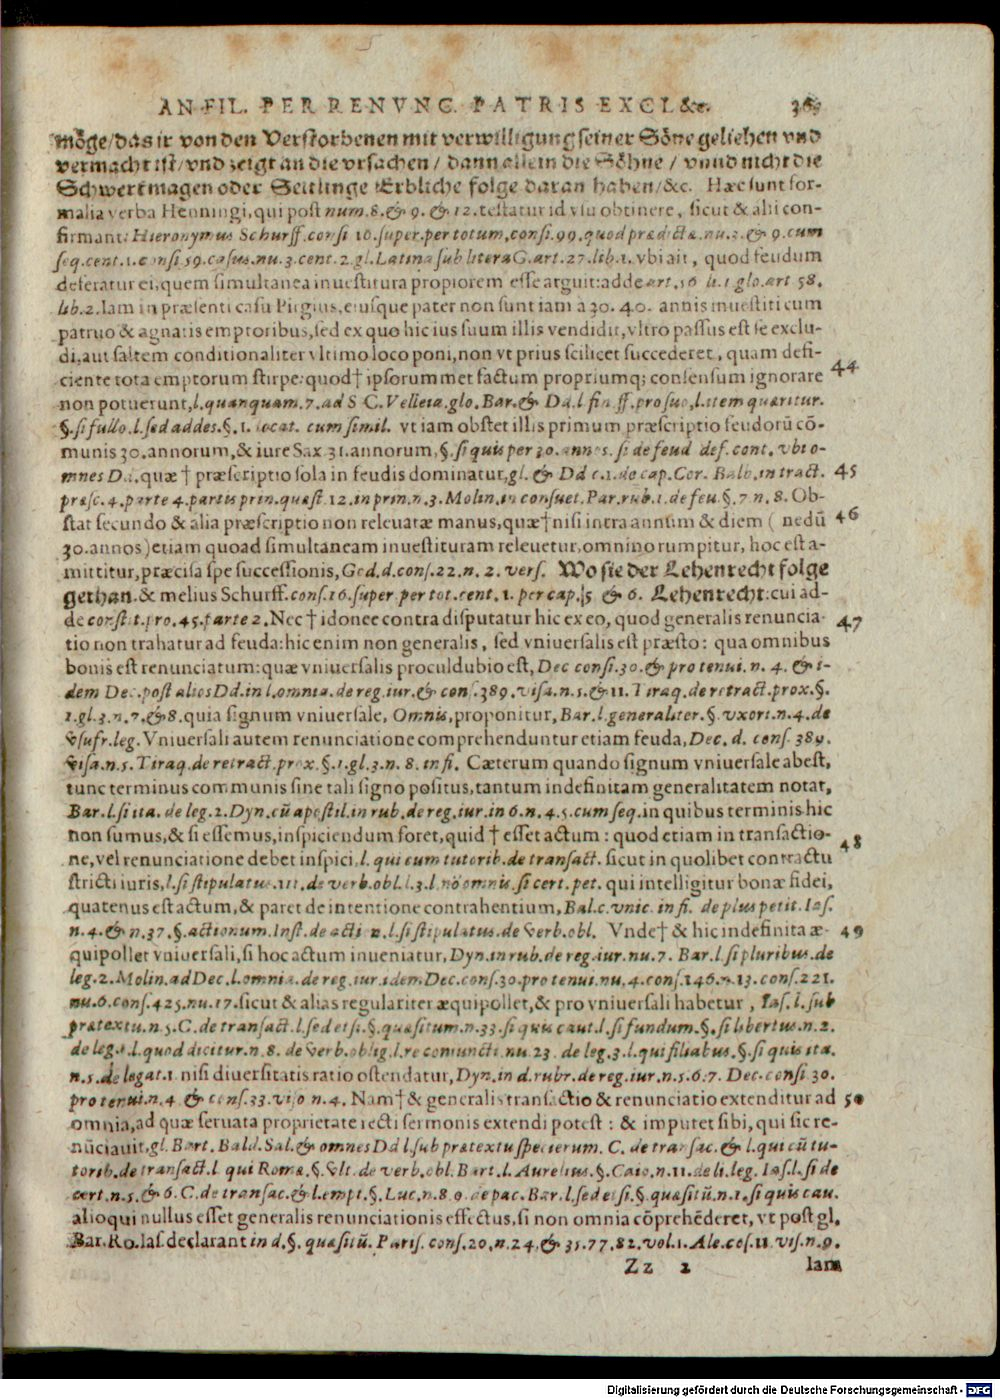 AN FIL. PER RENVNC. PATRIS EXCL &c.
möge/das ir von den Verstorbenen mit verwilligung seiner Söne geliehen vnd
vermacht ist/vnd zeigt an die vrsachen/ dann allein die Söhne / vnnd nicht die
Schwertmagen oder Seitlinge Erbliche folge daran haben/&c. Hæc sunt for-
malia verba Henningi, qui post num. 8. & 9. & 12. testatur id vsu obtinere, sicut & alii con-
firmant: Hieronymus Schurff. consi 16. super. per totum, consi. 99. quod prædicta. nu. 3. & 9. cum
seq. cent. 1. consi 59. casus. nu. 3. cent. 2. gl. Latina sub litera G. art. 27. lib. 1. vbi ait, quod feudum
deferatur ei, quem simultanea inuestitura propiorem esse arguit: adde art. 56 li. 1 glo. art 58.
lib. 2. Iam in præsenti casu Pirgius, eiusque pater non sunt iam à 30. 40. annis inuestiti cum
patruo & agnatis emptoribus, sed ex quo hic ius suum illis vendidit, vltro passus est se exclu-
di, aut saltem conditionaliter vltimo loco poni, non vt prius scilicet succederet, quam defi-
ciente tota emptorum stirpe: quod† ipsorummet factum propriumq; consensum ignorare 44
non potuerunt, l. quanquam. 7. ad S C. Velleia. glo. Bar. & Dd. l fin ff. pro suo, l. item quæritur.
§. si fullo. l. sed addes. §. 1. locat. cum simil. vt iam obstet illis primum præscriptio feudorū cō-
munis 30. annorum, & iure Sax 31. annorum, §. si quis per 30. annos. si de feud def. cont. vbi o-
mnes Dd. quæ † præscriptio sola in feudis dominatur, gl. & Dd c. 1. de cap. Cor. Balb. in tract. 45
præsc. 4. parte 4. partis prin. quæst. 12. in prin. n. 3. Molin. in consuet. Par. rub. 1. de feu. §. 7 n. 8. Ob-
stat secundo & alia præscriptio non releuatæ manus, quæ† nisi intra annum & diem ( nedū 46
30. annos) etiam quoad simultaneam inuestituram releuetur, omnino rumpitur, hoc est a-
mittitur, præcisa spe successionis, Ged. d. cons. 22. n. 2. vers. Wo sie der Lehenrecht folge
gethan. & melius Schurff. cons. 16. super. per tot. cent. 1. per cap. 5 & 6. Lehenrecht: cui ad-
de constit. pro. 45. parte 2. Nec † idonee contra disputatur hic ex eo, quod generalis renuncia- 47
tio non trahatur ad feuda: hic enim non generalis, sed vniuersalis est præsto: qua omnibus
bonis est renunciatum: quæ vniuersalis proculdubio est, Dec consi. 30. & pro tenui. n. 4. & i-
dem Dec. post alios Dd. in l. omnia. de reg. iur. & cons. 389. visa. n. 5. & 11. Tiraq. de retract. prox. §.
1. gl. 3. n. 7. & 8. quia signum vniuersale, Omnis, proponitur, Bar. l. generaliter. §. vxori. n. 4. de
vsufr. leg. Vniuersali autem renunciatione comprehenduntur etiam feuda, Dec. d. cons. 389.
visa. n. 5. Tiraq. de retract. prox. §. 1. gl. 3. n. 8. in fi. Cæterum quando signum vniuersale abest,
tunc terminus communis sine tali signo positus, tantum indefinitam generalitatem notat,
Bar. l. si ita. de leg. 2. Dyn. cū apostil. in rub. de reg. iur. in 6. n. 4. 5. cum seq. in quibus terminis hic
non sumus, & si essemus, inspiciendum foret, quid † esset actum: quod etiam in transactio-
ne, vel renunciatione debet inspici, l. qui cum tutorib. de transact. sicut in quolibet contractu 48
stricti iuris, l. si stipulatus. 111. de verb. obl. l. 3. l. nō omnis. si cert. pet. qui intelligitur bonæ fidei,
quatenus est actum, & paret de intentione contrahentium, Bal. c. vnic. in fi. de plus petit. Ias.
n. 4. & n. 37. §. actionum. Inst. de acti. l. si stipulatus. de verb. obl. Vnde† & hic indefinita æ- 49
quipollet vniuersali, si hoc actum inueniatur, Dyn. in rub. de reg. iur. nu. 7. Bar. l. si pluribus. de
leg. 2. Molin. ad Dec. l. omnia. de reg. iur. idem Dec. cons. 30. pro tenui. nu. 4. cons. 146. n. 13. cons. 221.
nu. 6. cons. 425. nu. 17. sicut & alias regulariter æquipollet, & pro vniuersali habetur, Ias. l. sub
prætextu. n. 5. C. de transact. l. sed etsi. §. quæsitum. n. 33. si quis caut. l. si fundum. §. si libertus. n. 2.
de leg. 1. l. quod dicitur. n. 8. de verb. oblig. l. re coniuncti. nu. 23. de leg. 3. l. qui filiabus. §. si quis ita.
n. 5. de legat. 1. nisi diuersitatis ratio ostendatur, Dyn. in d. rubr. de reg. iur. n. 5. 6. 7. Dec. consi 30.
pro tenui. n. 4 & cons. 33. viso n. 4. Nam† & generalis transactio & renunciatio extenditur ad 50
omnia, ad quæ seruata proprietate recti sermonis extendi potest: & imputet sibi, qui sic re-
nūciauit, gl. Bart. Bald. Sal. & omnes Dd l. sub prætextu specierum. C. de transac. & l. qui cū tu-
torib. de transact. l. qui Romæ, §. vlt. de verb. obl. Bart. l. Aurelius. §. Caio. n. 11. de li. leg. Ias. l. si de
cert. n. 5. & 6. C. de transac. & l. empt. §. Luc. n. 8. 9. de pac. Bar. l. sed etsi. §. quæsitū. n. 1. si quis cau.
alioqui nullus esset generalis renunciationis effectus, si non omnia cōprehēderet, vt post gl.
Bar. Ro. Ias. declarant in d. §. quæsitū. Paris. cons. 20. n. 24. & 35. 77. 82. vol. 1. Ale. cōs. 11. vis. n. 9.
Zz 2 Iam
Digitalisierung gefördert durch die Deutsche Forschungsgemeinschaft - DFG